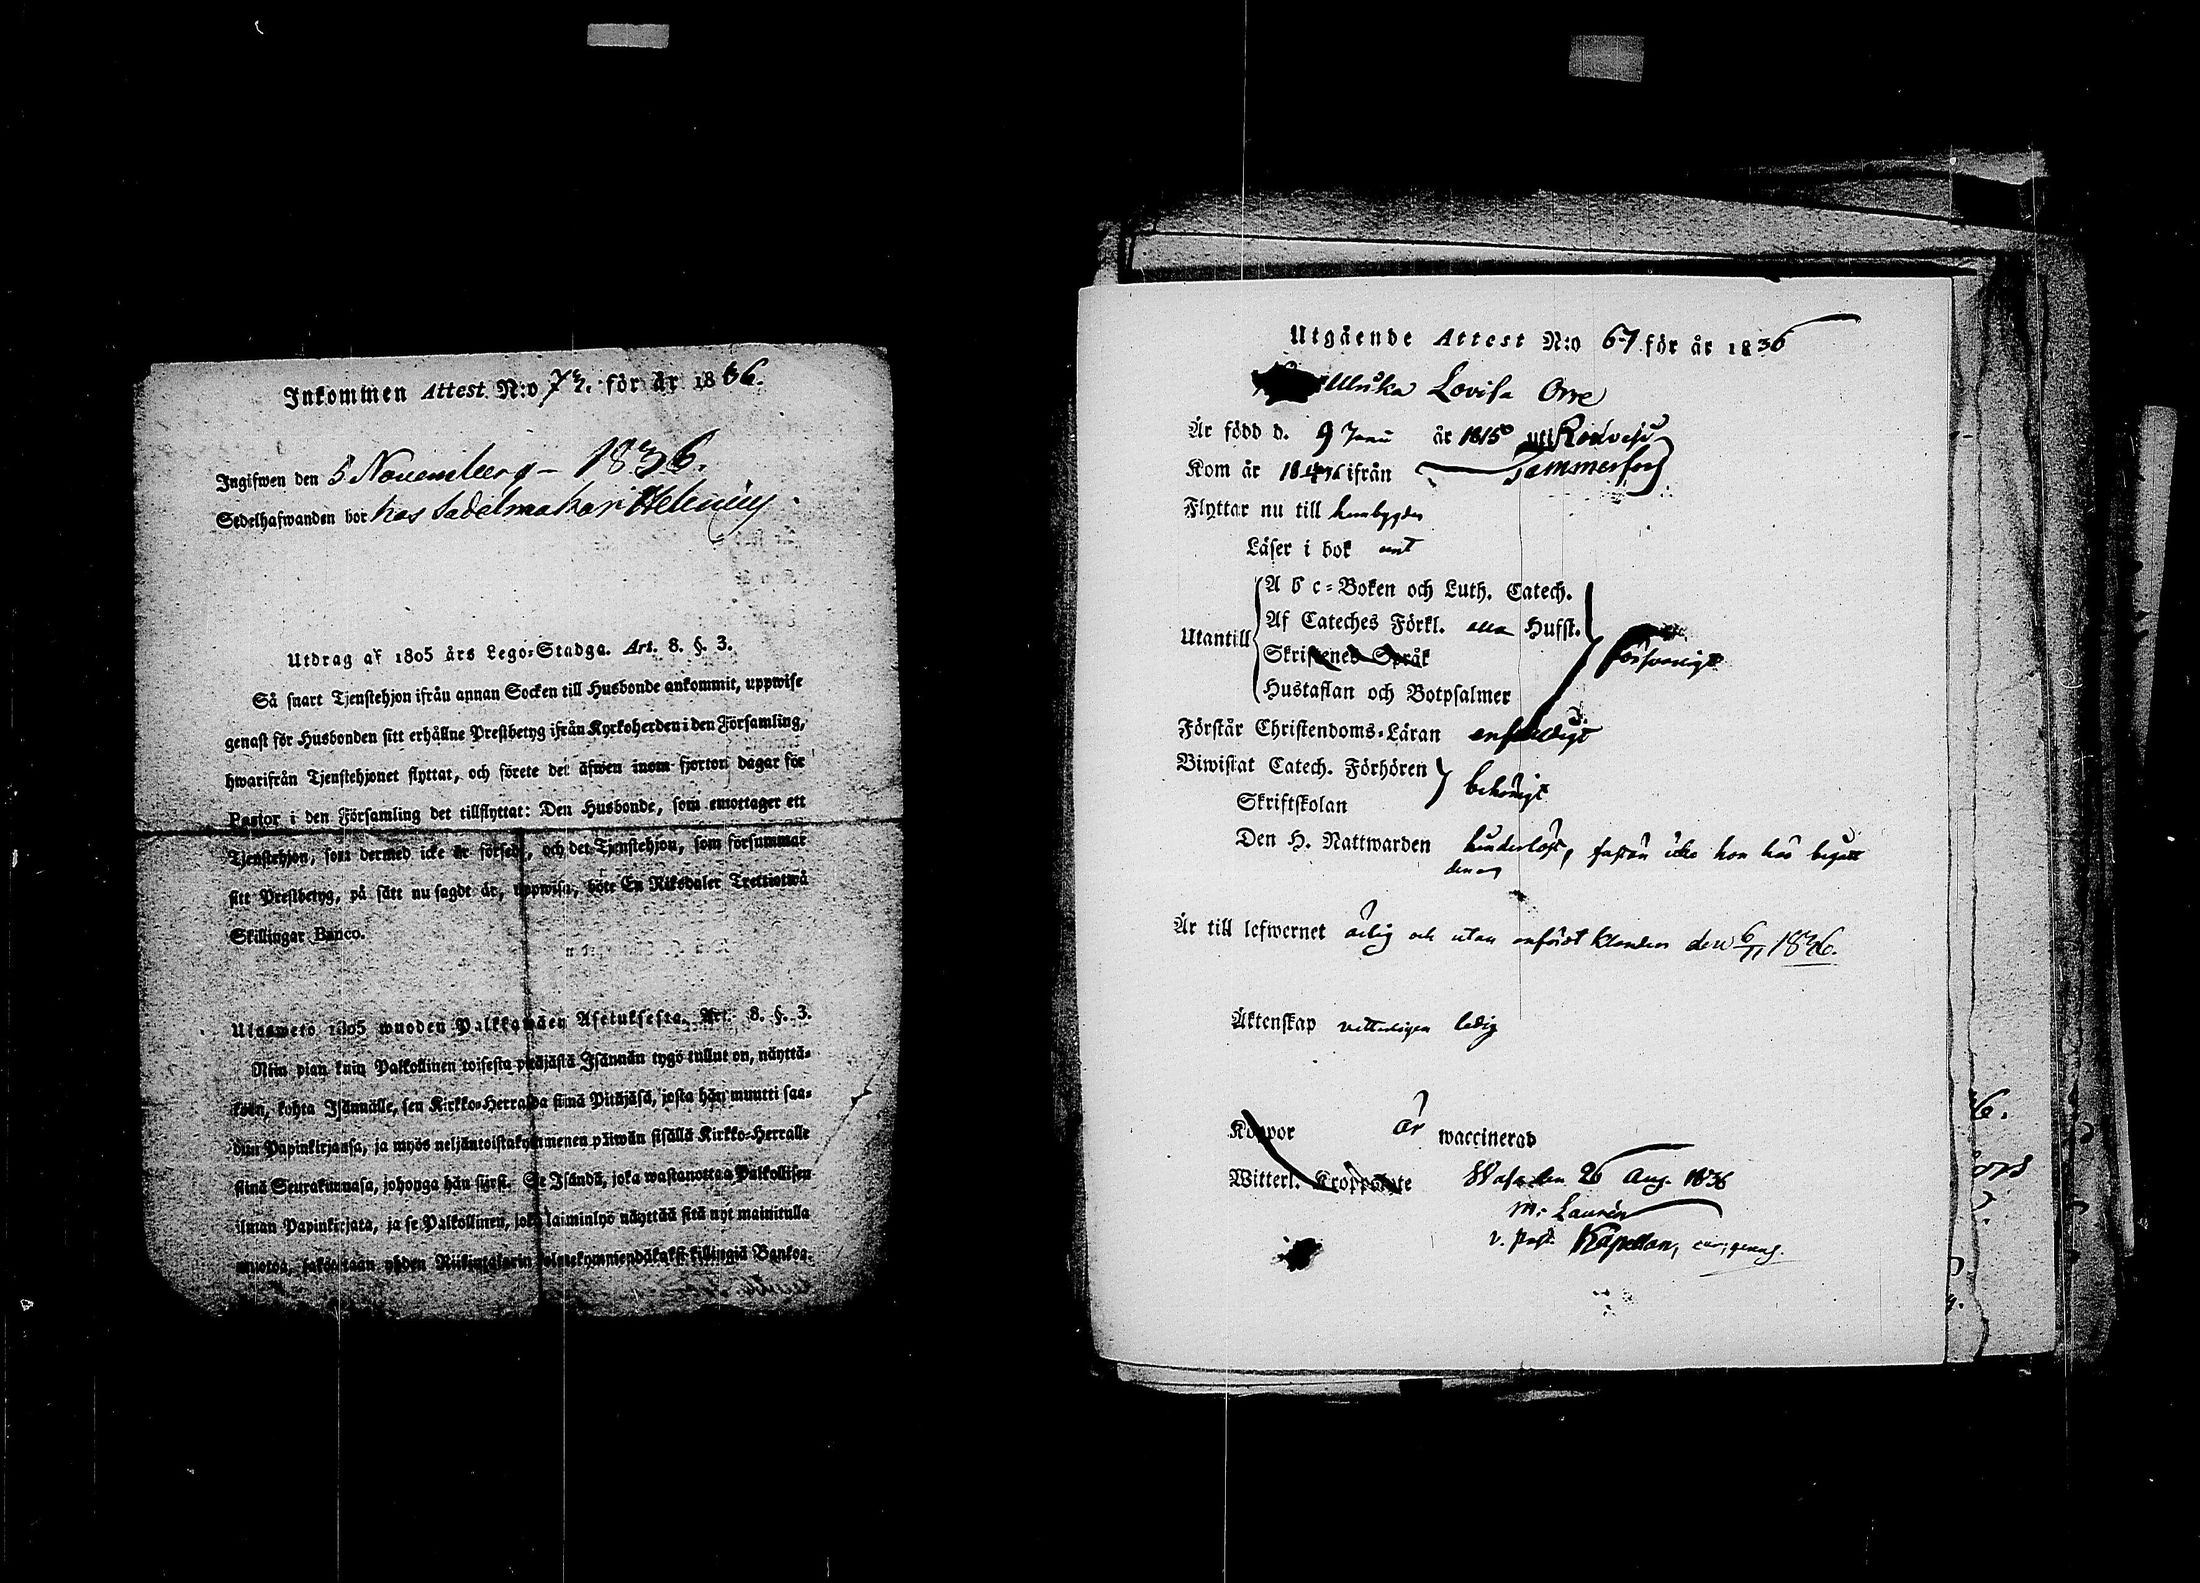 Inkommen Attest N:o 72. för år 1836.
Ingifwen den 5 November 1836.
Sedelhafwanden bor hos Sadelmakar
Utdrag af 1805 års Lego-Stadga. Art. 8. §. 3.
Så snart Tjenstehjon ifrån annan Socken till Husbonde ankommit, uppwise
genast för Husbonden sitt erhållne Prestbetyg ifrån Kyrkoherden i den Församling,
hwarifrån Tjenstehjonet flyttat, och förete det äfwen inom fjorton dagar för
Pastor i den Församling det tillflyttat: Den Husbonde, som emottager ett
Tjenstehjon, som dermed icke är försedt, och det Tjenstehjon, som försummar
sitt Prestbetyg, på sätt nu sagdt är, uppwisa, böte En Riksdaler Trettiotwå
Skillingar Banco.
Ulosweto 1805 wuoden Palkkawäen Asetuksesta. Art. 8. §. 3.
Niin pian kuin Palkollinen toisesta pitäjästä Isännän tygö tullut on, näyttä-
köön, kohta Isännälle, sen Kirkko-Herralda siinä Pitäjäsä, josta hän muutti saa-
dun Papinkirjansa, ja myös neljäntoistakymmenen päiwän sisällä Kirkko-Herralle
siinä Seurakunnasa, johonga hän siirsi. Se Isändä, joka wastanottaa Palkollisen
ilman Papinkirjata, ja se Palkollinen, joka laiminlyö näyttää sitä nyt mainitulla
muotoa, sakoitetaan yhden Riikintalarin kolmekymmendäkaksi killingiä Bankos.
Utgående Attest N:o 67 för år 1836
Ulrika Lovisa Orre
Är född d. 9 Janu år 1815 uti
Kom år ifrån Tammerfors
Flyttar nu till hembygden
Läser i bok
A b c-Boken och Luth. Catech.
Af Cateches Förkl. Husst.
Utantill
Skriftenes Språk
försvarligt
Hustaflan och Botpsalmer
Förstår Christendoms-Läran enfaldigt
Biwistat Catech. Förhören
behörigt
Skriftskolan
Den H. Nattwarden hinderlöst, fastän icke hon har begått
den
Är till lefwernet ärlig och utan anfördt klander den 6/11 1836.
Äktenskap vetterligen ledig
Koppor är waccinerad
Witterl. Kroppslyte Wasa den 26 Aug. 1836
M. Laurén
v. Past. Kapellan,